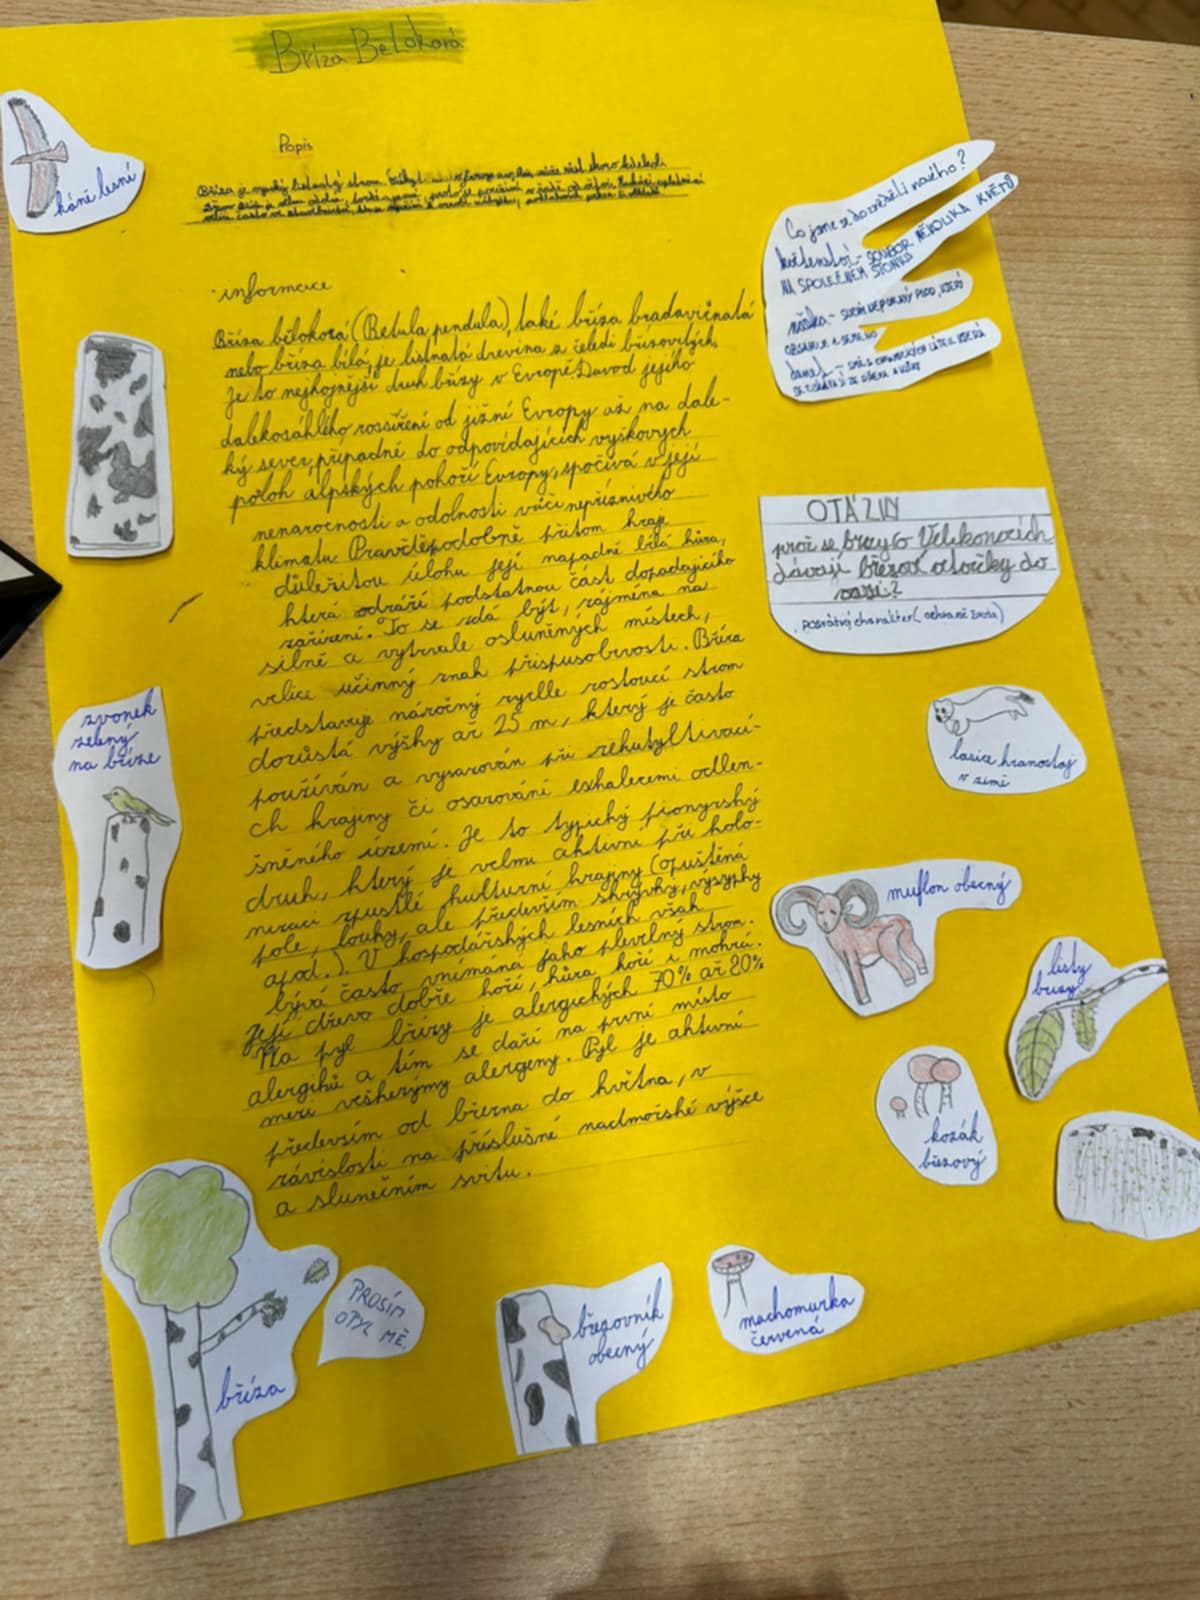 Bříza Bělokorá
Popis
káně lesní
informace
Bříza bělokorá (Betula pendula), také bříza bradavičnatá
nebo bříza bílá, je listnatá dřevina z čeledi břízovitých.
Je to nejhojnější druh břízy v Evropě. Důvod jejího
dalekosáhlého rozšíření od jižní Evropy až na dale-
ký sever, případně do odpovídajících výškových
poloh alpských pohoří Evropy, spočívá v její
nenáročnosti a odolnosti vůči nepříznivého
klimatu Pravděpodobně přitom hraje
důležitou úlohu její nápadně bílá kůra,
která odráží podstatnou část dopadajícího
záření. To se zdá být, zájména na
silně a vytrvale osluněných místech,
velice účinný znak přispusobivosti. Bříza
představuje náročný rychle rostoucí strom
dorůstá výšky až 25 m, který je často
používán a vysazován při rekultyltivací-
ch krajiny či osazování exhalacemi odlen-
šněného území. Je to typický pionyrský
druh, který je velmi aktivní při kolo-
nizaci zpustlé kulturní krajiny (opuštěná
pole, louky, ale především skrývky, výsypky
apod.). V hospodářských lesních však
bývá často vnímána jako plevelný strom.
Její dřevo dobře hoří, kůra hoří i mokrá.
Na pyl břízy je alergických 70% až 80%
alergiků a tím se daří na první místo
mezi veškerýmy alergeny. Pyl je aktivní
především od března do května, v
závislosti na příslušné nadmořské výšce
a slunečním svitu.
Co jsme se dozvěděli nového?
květenství - SOUBOR NĚKOLIKA KVĚTŮ
NA SPOLEČNÉM STONKU
nažka - SUCHÝ NEPUKAVÝ PLOD, KTERÝ
OBSAHUJE 1 SEMENO
OTÁZKY
proč se brzy o Velikonocích
dávají březové větvičky do
vázi?
zvonek
zelený
na bříze
lasice hranostaj
v zimě
muflon obecný
listy
břízy
kozák
březový
bříza
PROSÍM
OPYL MĚ.
březovník
obecný
muchomůrka
červená